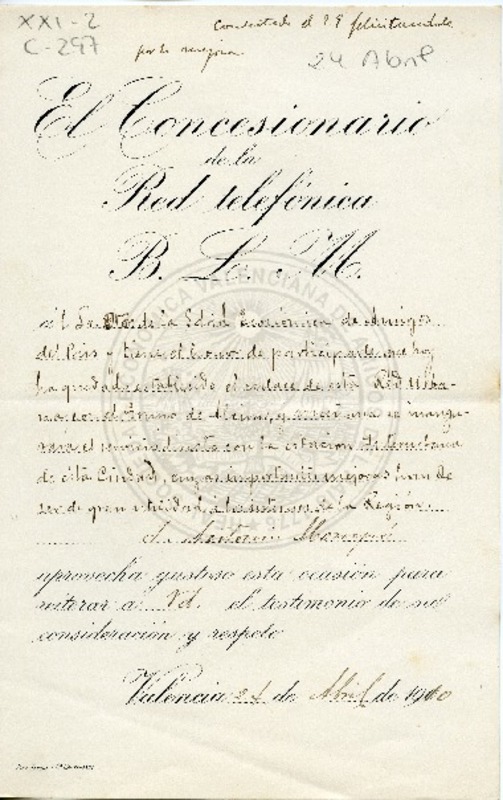 XXI-2
C-297
Contestado el 29 felicitandole
por la mejora
24 Abril
El Concesionario
de la
Red telefónica
B. L. M.
al Sr. de la Sdad Económica de Amigos
del Pais y tiene el honor de participarle que hoy
ha quedado establecido el enlace de esta Red Urba-
na con el de y mañana se inaugu-
rará el servicio directo con la estación telefonica
de esta Ciudad, cuyas importantes mejoras han de
ser de gran utilidad á los intereses de la Región
aprovecha gustoso esta ocasión para
reiterar a Vd. el testimonio de su
consideración y respeto
Valencia 24 de Abril de 1910